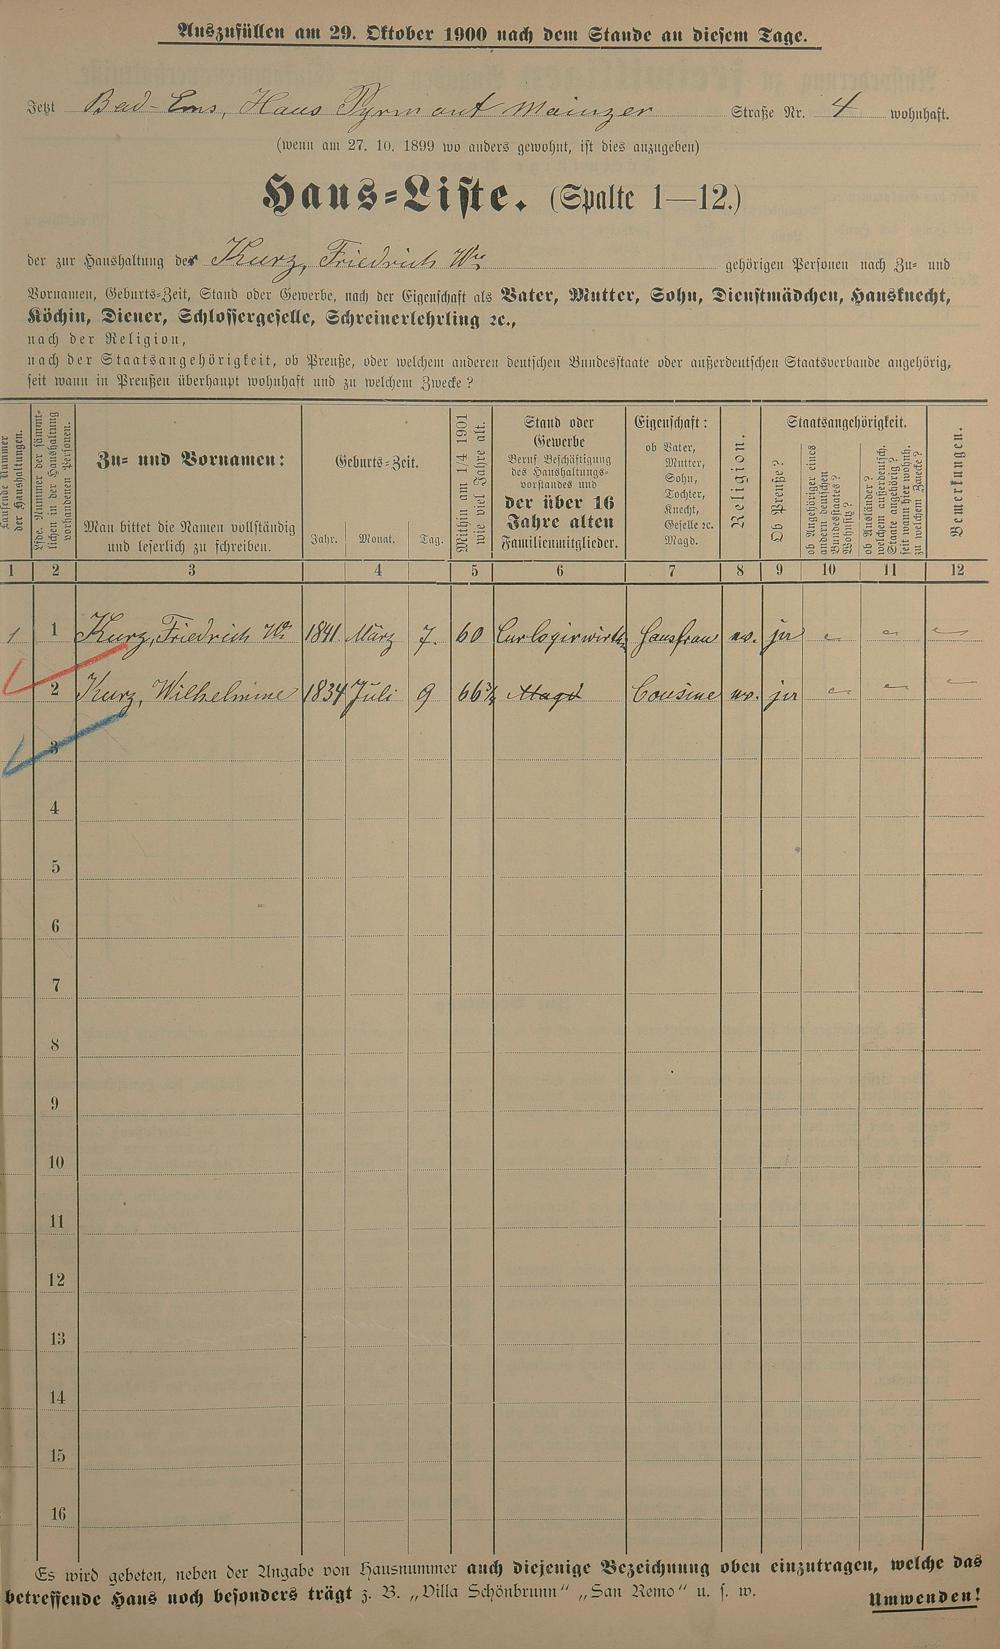 Auszufüllen am 29. Oktober 1900 nach dem Stande an diesem Tage.
Jetzt Bad-Ems, Haus Pyrmont Mainzer Straße Nr. 4 wohnhaft.
(wenn am 27. 10. 1899 wo anders gewohnt, ist dies anzugeben)
Haus-Liste. (Spalte 1—12.)
der zur Haushaltung der Kurz, Friedrich Wwe gehörigen Personen nach Zu- und
Vornamen, Geburts-Zeit, Stand oder Gewerbe, nach der Eigenschaft als Vater, Mutter, Sohn, Dienstmädchen, Hausknecht,
Köchin, Diener, Schlossergeselle, Schreinerlehrling ꝛc.,
nach der Religion,
nach der Staatsangehörigkeit, ob Preuße, oder welchem anderen deutschen Bundesstaate oder außerdeutschen Staatsverbande angehörig,
seit wann in Preußen überhaupt wohnhaft und zu welchem Zwecke?
Laufende Nummer
der Haushaltungen.
Lfde. Nummer der sämmt-
lichen in der Haushaltung
vorhandenen Personen.
Zu- und Vornamen:
Man bittet die Namen vollständig
und leserlich zu schreiben.
Geburts-Zeit.
Jahr. Monat. Tag.
Mithin am 1/4 1901
wie viel Jahre alt.
Stand oder
Gewerbe
Beruf Beschäftigung
des Haushaltungs-
vorstandes und
der über 16
Jahre alten
Familienmitglieder.
Eigenschaft:
ob Vater,
Mutter,
Sohn,
Tochter,
Knecht,
Geselle ꝛc.
Magd.
Religion.
Staatsangehörigkeit.
Ob Preuße?
ob Angehöriger eines
andern deutschen
Bundesstaates?
Wohnsitz?
ob Ausländer?
welchem außerdeutsch.
Staate angehörig?
seit wann hier wohnh.
zu welchem Zwecke?
Bemerkungen.
1 2 3 4 5 6 7 8 9 10 11 12
1 1 Kurz, Friedrich Wwe 1841 März 7. 60 Curlogirwirthin Hausfrau ev. ja — — —
2 Kurz, Wilhelmine 1834 Juli 9 66¾ Magd Cousine ev. ja — — —
3
4
5
6
7
8
9
10
11
12
13
14
15
16
Es wird gebeten, neben der Angabe von Hausnummer auch diejenige Bezeichnung oben einzutragen, welche das
betreffende Haus noch besonders trägt z. B. „Villa Schönbrunn" „San Remo" u. s. w. Umwenden!